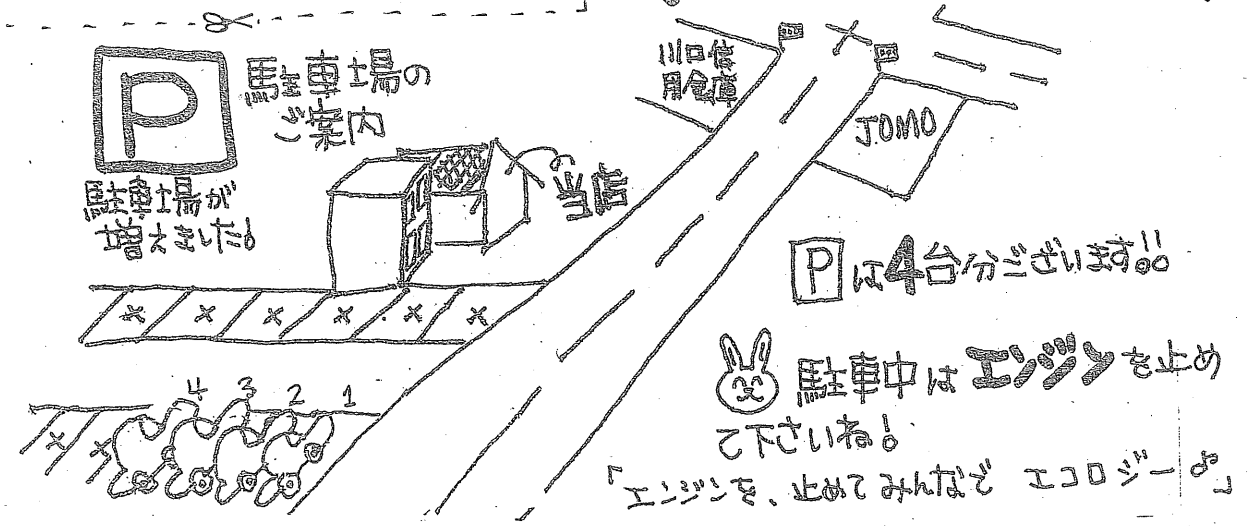 P
駐車場の
ご案内
駐車場が
増えました!
当店
川口信
用金庫
JOMO
Pは4台分ございます!!
駐車中はエンジンを止め
て下さいね!
「エンジンを、止めてみんなで エコロジー♪」
4 3 2 1